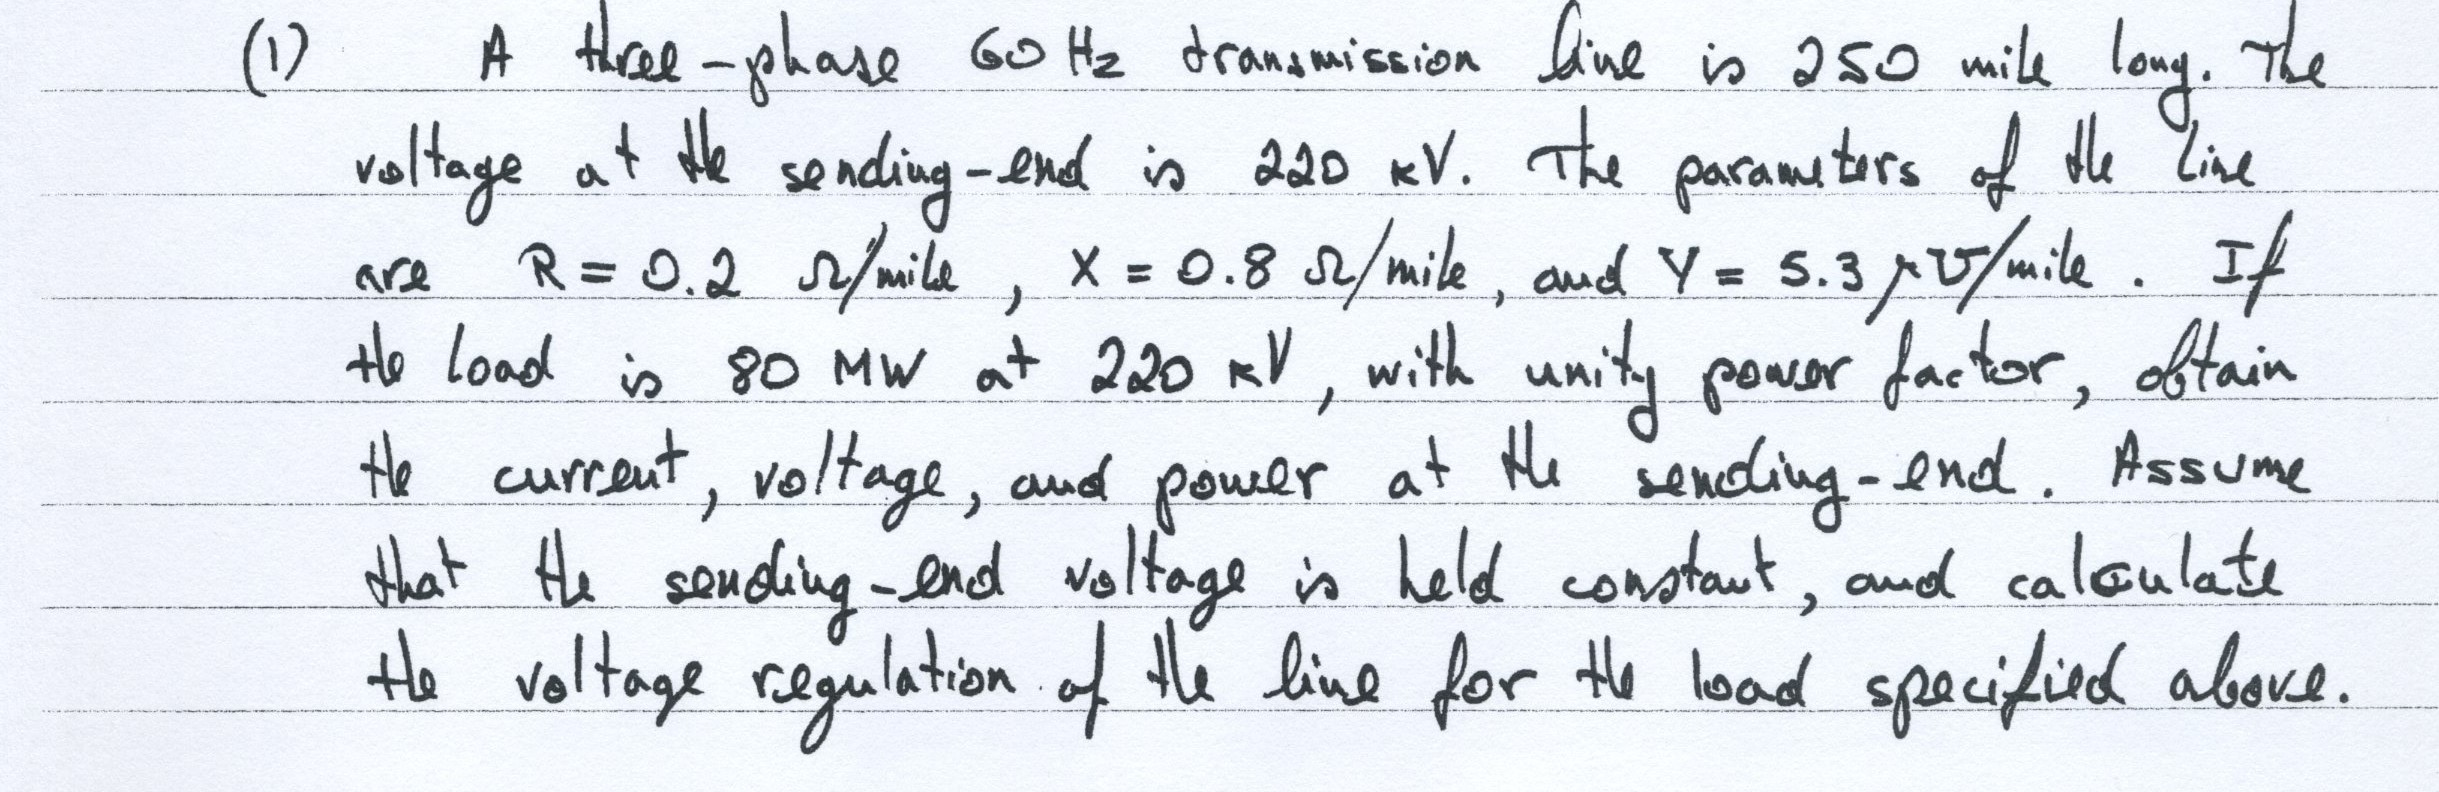 (1) A three-phase 60 Hz transmission line is 250 mile long. The
voltage at the sending-end is 220 kV. The parameters of the line
are R = 0.2 Ω/mile, X = 0.8 Ω/mile, and Y = 5.3 μ℧/mile. If
the load is 80 MW at 220 kV, with unity power factor, obtain
the current, voltage, and power at the sending-end. Assume
that the sending-end voltage is held constant, and calculate
the voltage regulation of the line for the load specified above.